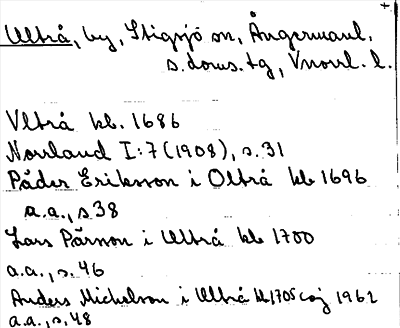 Ultrå, by, Stigsjö sn, Ångermanl.
s. doms. tg, Vnorrl. l.
Vltrå kb. 1686
Norrland I:7 (1908), s. 31
Påder Eriksson i Oltrå kb 1696
a.a., s 38
Lars Pärson i Ultrå kb 1700
a.a., s. 46
Anders Michelson i Ultrå kb 1705 1962
a.a., s. 48